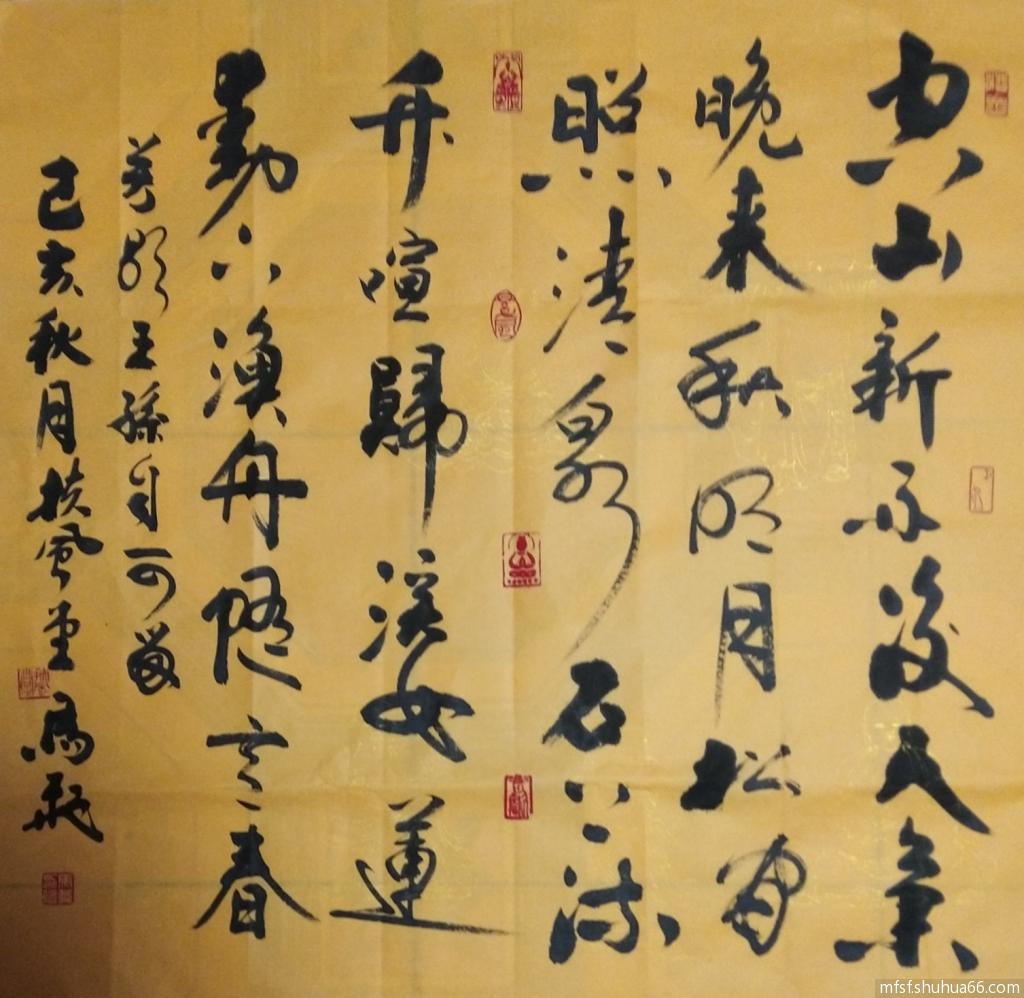 空山新雨後天氣
晚来秋明月松間
照清泉石上流
竹喧歸浣女蓮
動下漁舟隨意春
芳歇王孫自可留
己亥秋月扶風堂馬
mfsf.shuhua66.com